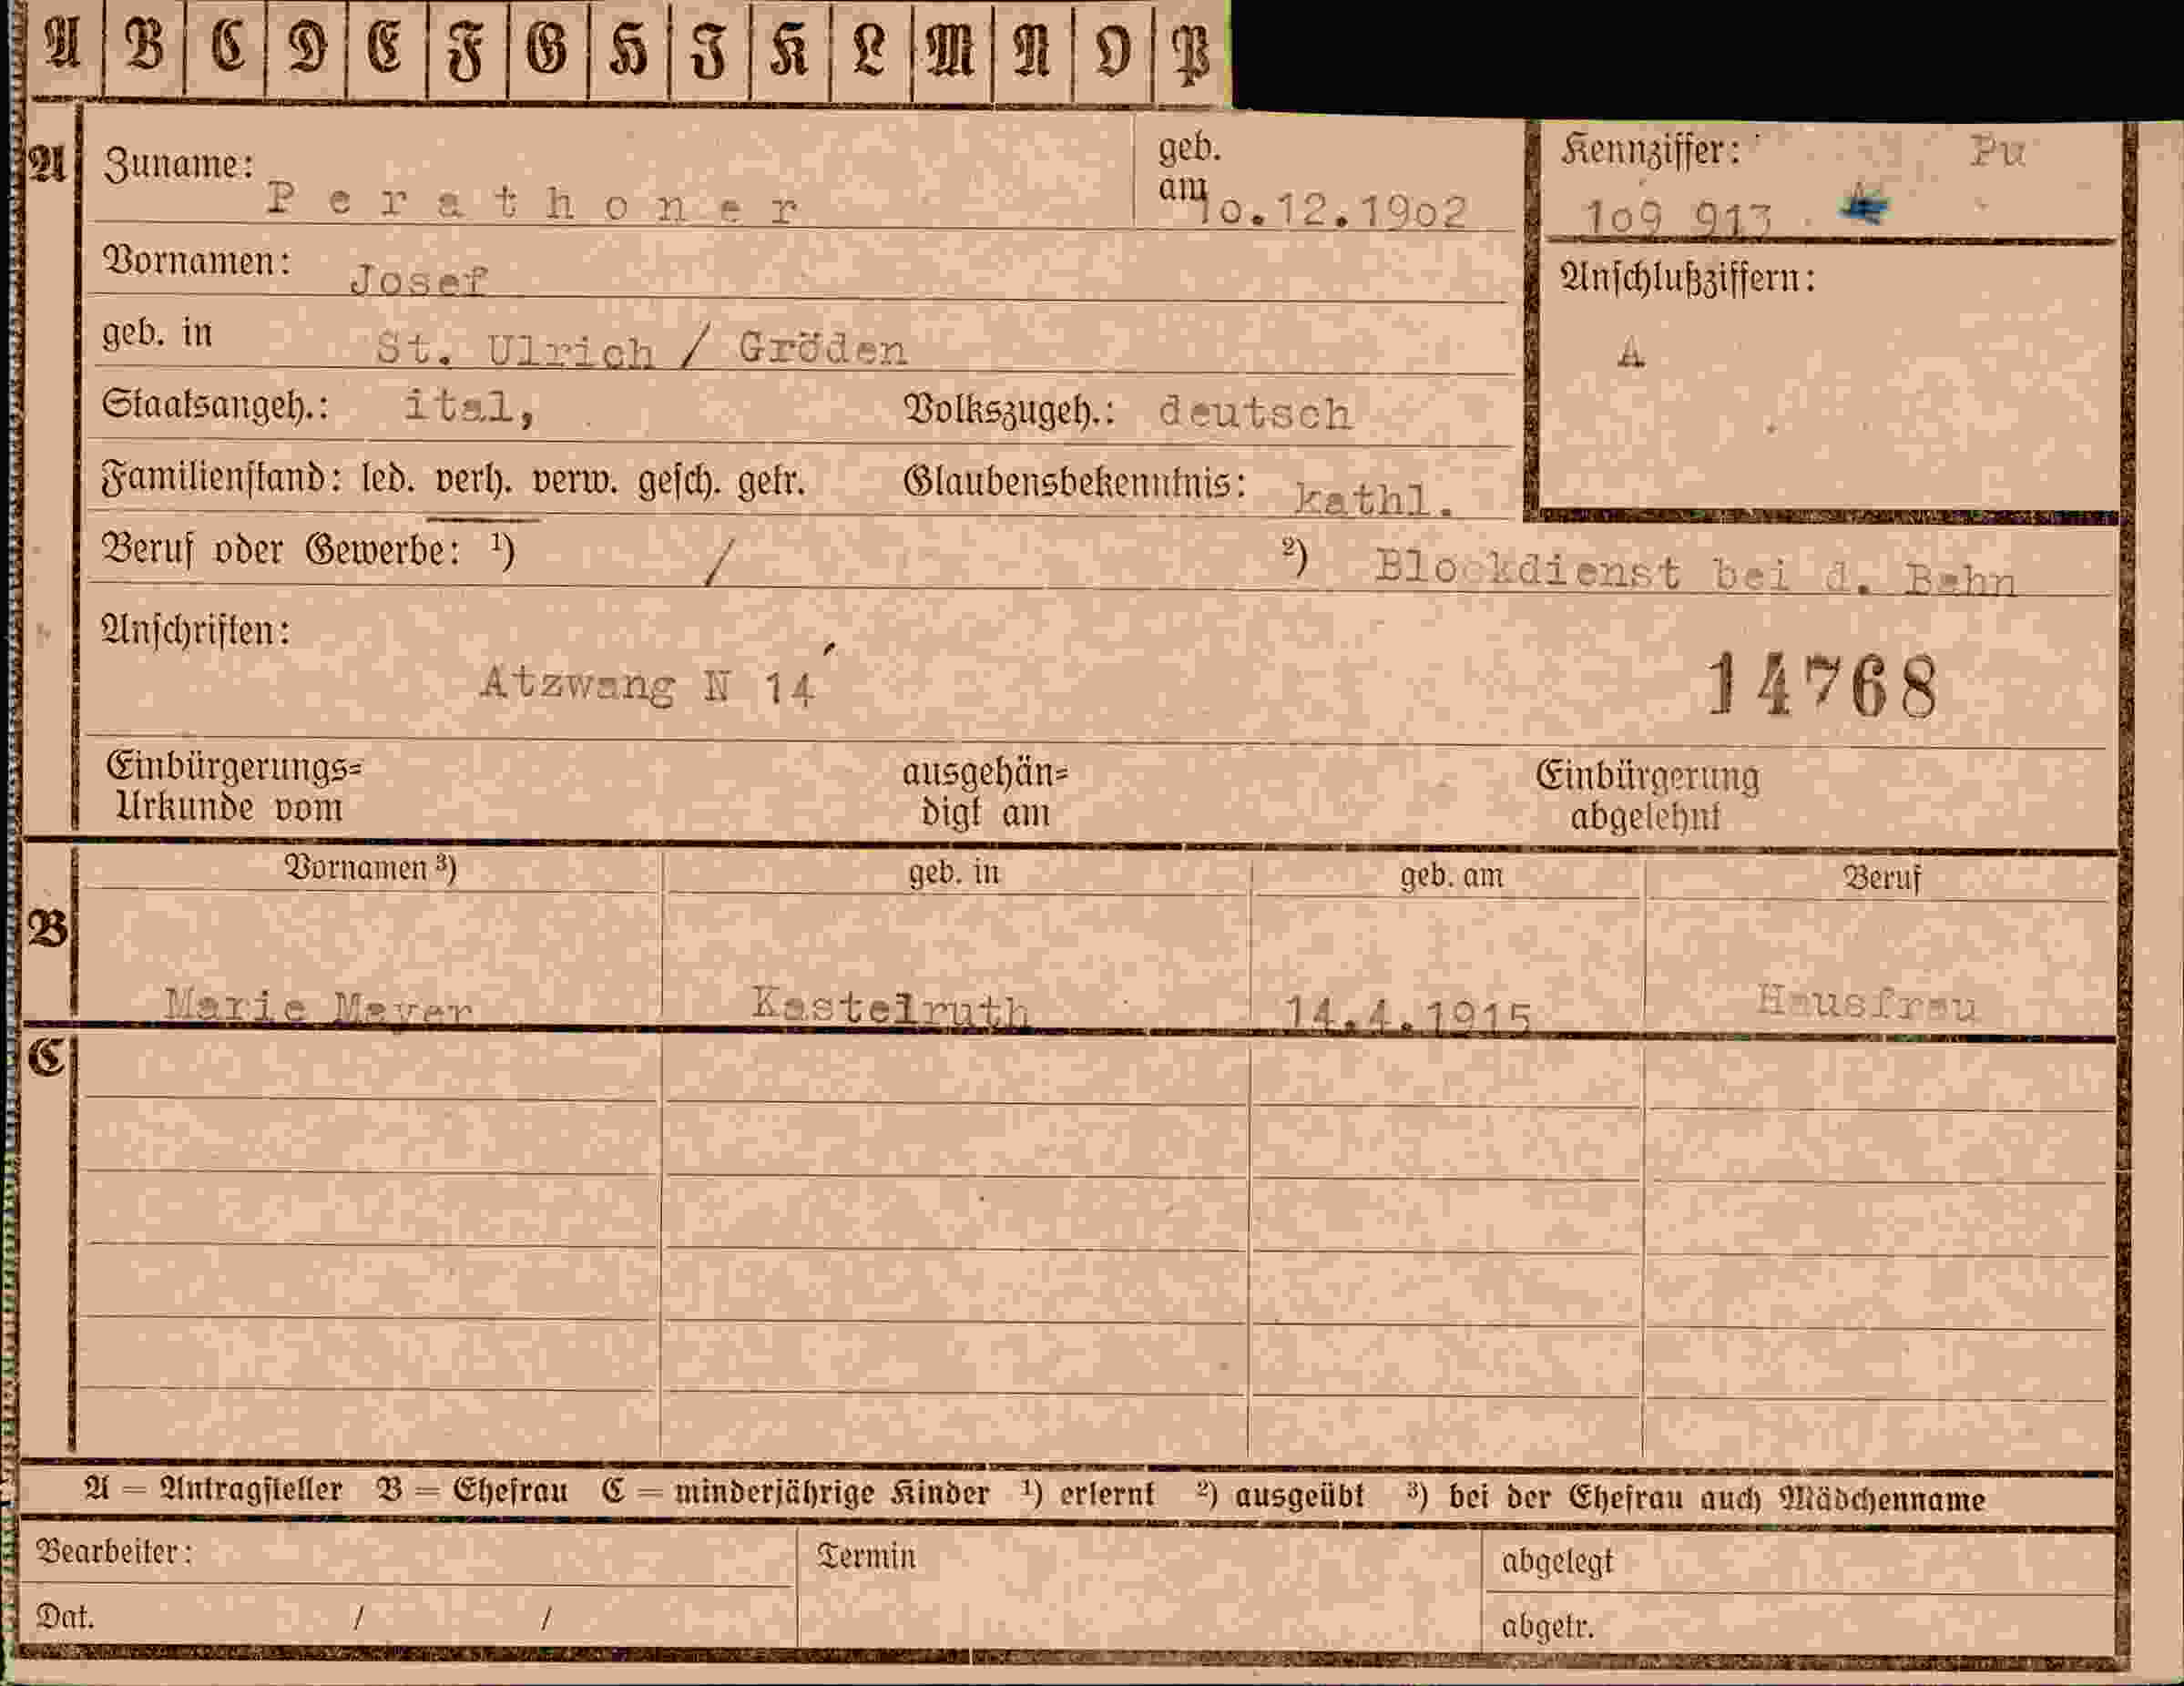 A B C D E F G H I K L M N O P
A Zuname: Perathoner geb. am 10.12.1902 Kennziffer: Pu
109 913
Vornamen: Josef Anschlußziffern:
geb. in St. Ulrich / Gröden A
Staatsangeh.: ital, Volkszugeh.: deutsch
Familienstand: led. verh. verw. gesch. getr. Glaubensbekenntnis: kathl.
Beruf oder Gewerbe: ¹) / ²) Blockdienst bei d. Bahn
Anschriften:
Atzwang N 14 14768
Einbürgerungs= ausgehän= Einbürgerung
Urkunde vom digt am abgelehnt
Vornamen ³) geb. in geb. am Beruf
B
Marie Mayer Kastelruth 14.4.1915 Hausfrau
C
A = Antragsteller B = Ehefrau C = minderjährige Kinder ¹) erlernt ²) ausgeübt ³) bei der Ehefrau auch Mädchenname
Bearbeiter: Termin abgelegt
Dat. / / abgetr.